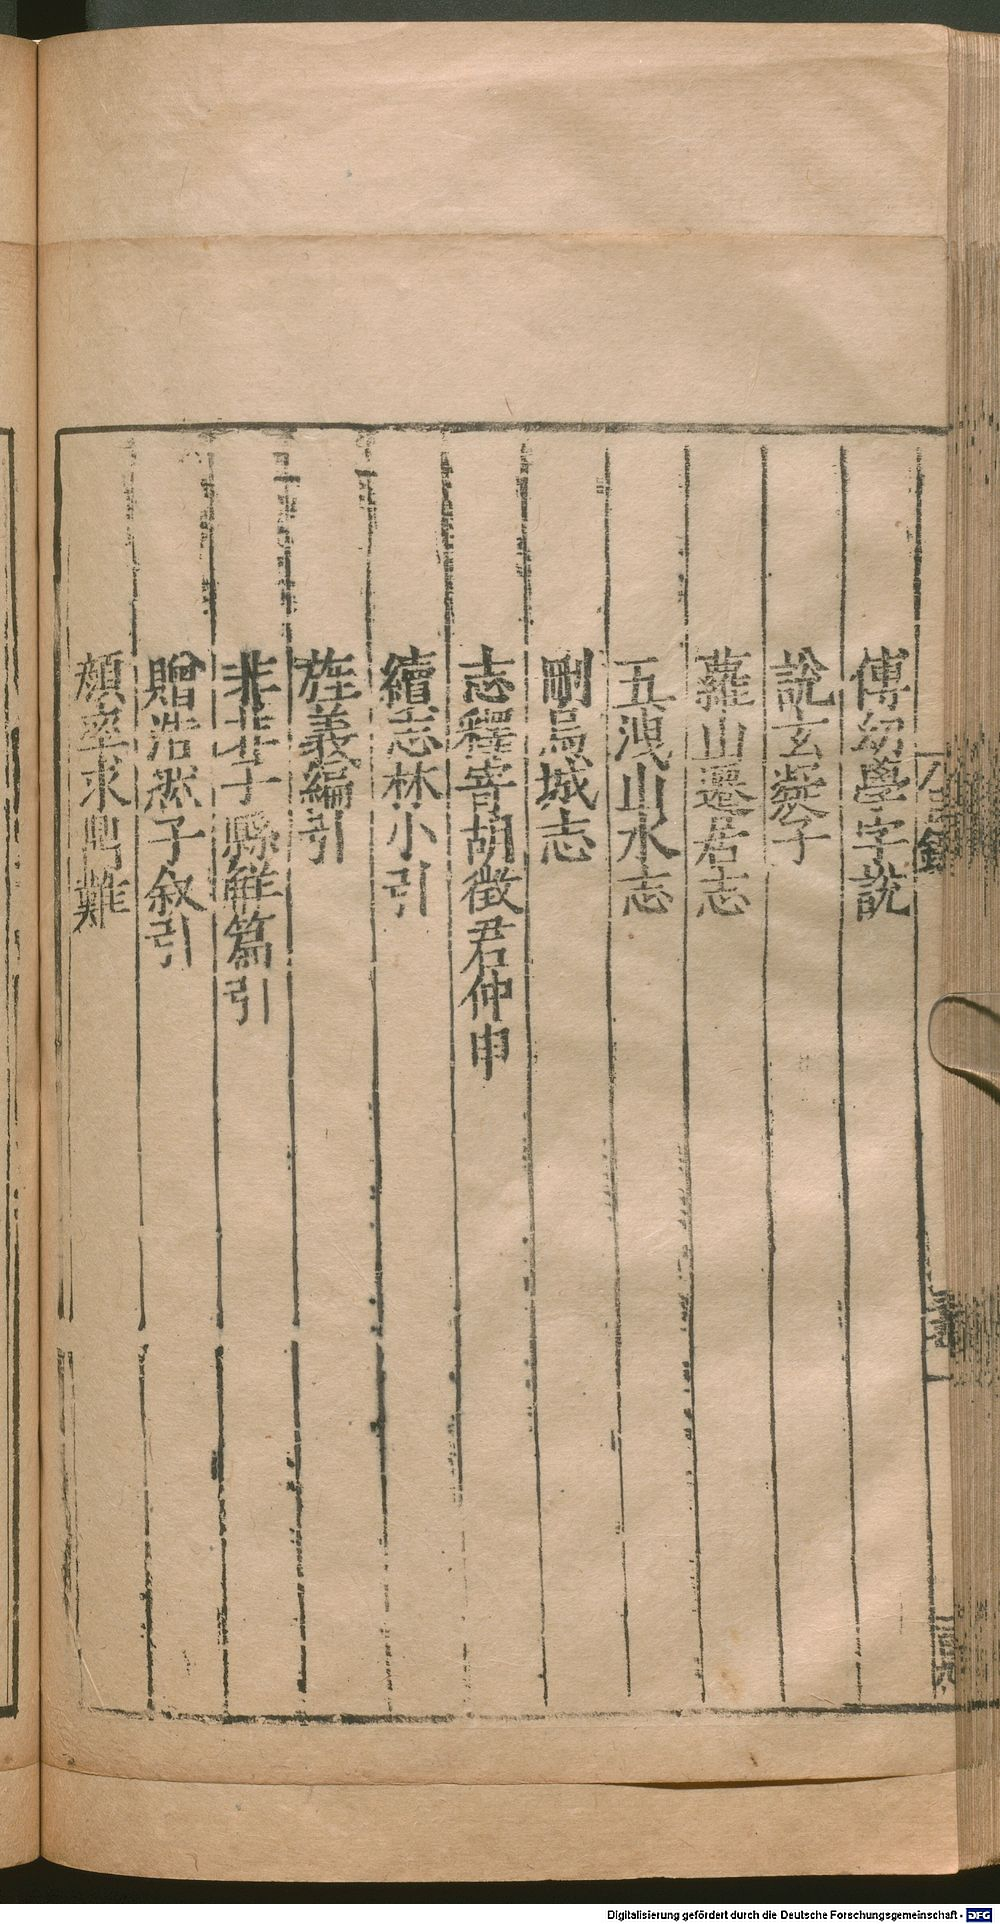 傅幼學字說
說玄凝子
蘿山遷居志
五洩山水志
剛烏城志
志釋寄胡徵君仲申
續志林小引
旌義編引
非非子縣解篇引
贈浩然子叙引
顏率求鼎難
Digitalisierung gefördert durch die Deutsche Forschungsgemeinschaft - DFG